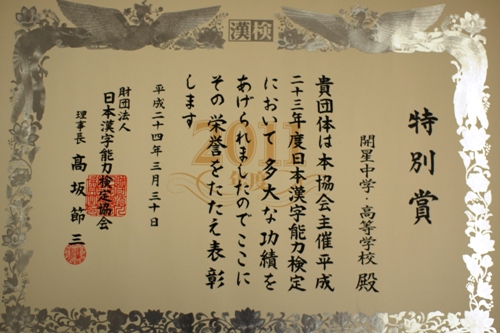 漢検
特別賞
開星中学・高等学校 殿
貴団体は本協会主催平成
二十三年度日本漢字能力検定
において多大な功績を
あげられましたのでここに
その栄誉をたたえ表彰
します
2011
年度
平成二十四年三月三十日
財団法人
日本漢字能力検定協会
理事長 高坂節三